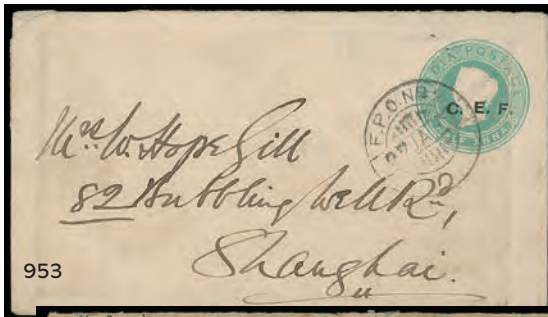 INDIA POSTAGE
C. E. F.
F.P.O. No
Mrs. W. Hope Gill
82 Bubbling Well Rd,
Shanghai.
953